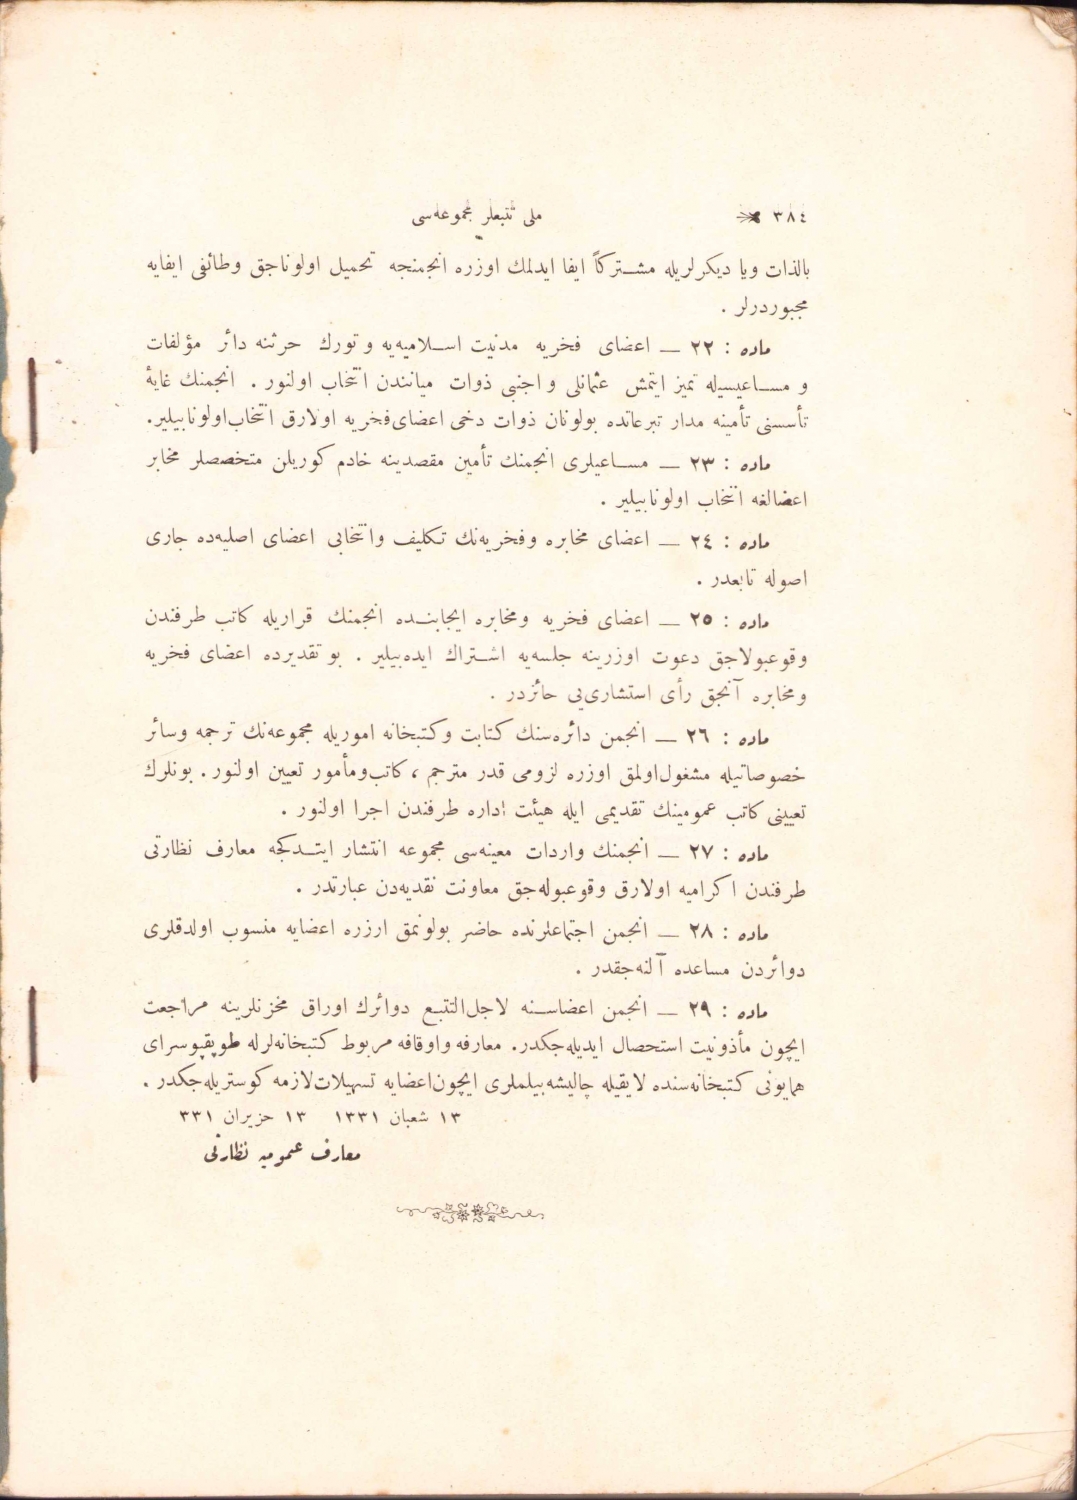 ٣٨٤
ملی تتبعلر مجموعه‌سی
بالذات ویا دیکرلریله مشترکاً ایفا ایدلمك اوزره انجمنجه تحمیل اولوناجق وظائفی ایفایه
مجبوردرلر .
ماده : ٢٢ — اعضای فخریه مدنیت اسلامیه‌یه و تورك حرثنه دائر مؤلفات
و مساعیسیله تمیز ایتمش عثمانلی و اجنبی ذوات میانندن انتخاب اولنور . انجمنك غایهٔ
تأسسنی تأمینه مدار تبرعاتده بولونان ذوات دخی اعضای‌فخریه اولارق انتخاب‌اولونابیلیر.
ماده : ٢٣ — مساعیلری انجمنك تأمین مقصدینه خادم کوریلن متخصصلر مخابر
اعضالغه انتخاب اولونابیلیر .
ماده : ٢٤ — اعضای مخابره وفخریه‌نك تکلیف وانتخابی اعضای اصلیه‌ده جاری
اصوله تابعدر .
ماده : ٢٥ — اعضای فخریه ومخابره ایجابنده انجمنك قراریله کاتب طرفندن
وقوعبولاجق دعوت اوزرینه جلسه‌یه اشتراك ایده‌بیلیر . بو تقدیرده اعضای فخریه
ومخابره آنجق رأی استشاری‌یی حائزدر .
ماده : ٢٦ — انجمن دائره‌سنك کتابت وکتبخانه اموریله مجموعه‌نك ترجمه وسائر
خصوصاتیله مشغول‌اولمق اوزره لزومی قدر مترجم ، کاتب‌ومأمور تعیین اولنور . بونلرك
تعیینی کاتب عمومینك تقدیمی ایله هیئت اداره طرفندن اجرا اولنور .
ماده : ٢٧ — انجمنك واردات معینه‌سی مجموعه انتشار ایتدکجه معارف نظارتی
طرفندن اکرامیه اولارق وقوعبوله‌جق معاونت نقدیه‌دن عبارتدر .
ماده : ٢٨ — انجمن اجتماعلرنده حاضر بولونمق ارزره اعضایه منسوب اولدقلری
دوائردن مساعده آلنه‌جقدر .
ماده : ٢٩ — انجمن اعضاسنه لاجل‌التتبع دوائرك اوراق مخزنلرینه مراجعت
ایچون مأذونیت استحصال ایدیله‌جکدر. معارفه واوقافه مربوط کتبخانه‌لرله طوپقپوسرای
همایونی کتبخانه‌سنده لایقیله چالیشه‌بیلملری ایچون‌اعضایه تسهیلات‌لازمه کوستریله‌جکدر .
١٣ شعبان ١٣٣١ ١٣ حزیران ٣٣١
معارف عمومیه نظارتی